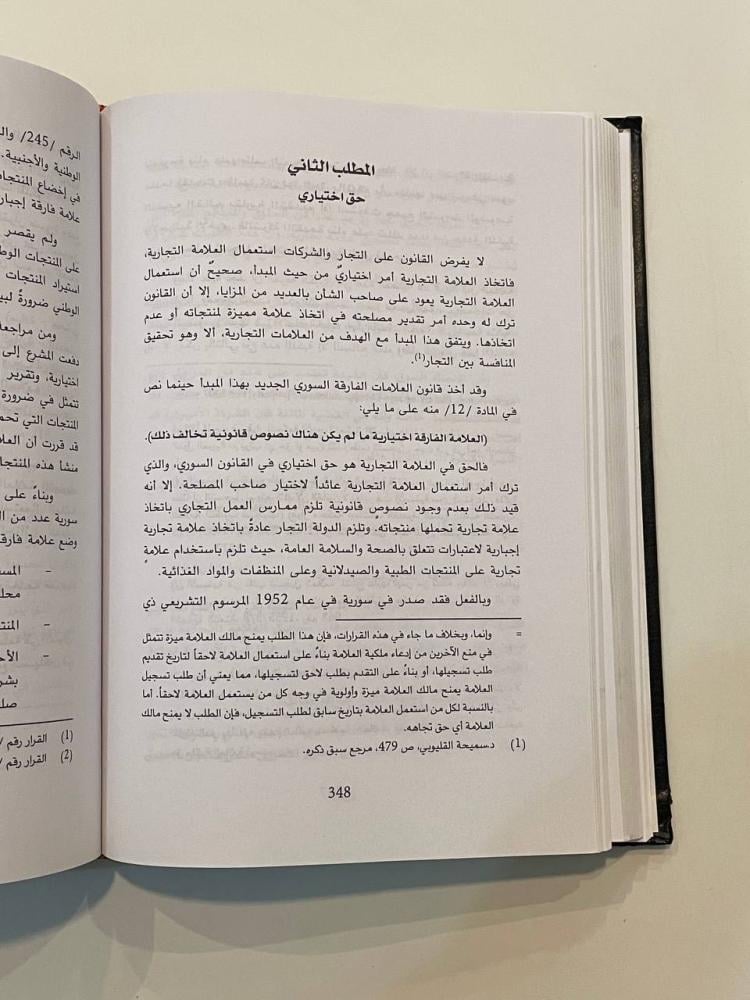 المطلب الثاني
حق اختياري
لا يفرض القانون على التجار والشركات استعمال العلامة التجارية،
فاتخاذ العلامة التجارية أمر اختياريٌ من حيث المبدأ، صحيحٌ أن استعمال
العلامة التجارية يعود على صاحب الشأن بالعديد من المزايا، إلا أن القانون
ترك له وحده أمر تقدير مصلحته في اتخاذ علامة مميزة لمنتجاته أو عدم
اتخاذها. ويتفق هذا المبدأ مع الهدف من العلامات التجارية، ألا وهو تحقيق
المنافسة بين التجار(1).
وقد أخذ قانون العلامات الفارقة السوري الجديد بهذا المبدأ حينما نص
في المادة /12/ منه على ما يلي:
(العلامة الفارقة اختيارية ما لم يكن هناك نصوص قانونية تخالف ذلك).
فالحق في العلامة التجارية هو حق اختياري في القانون السوري، والذي
ترك أمر استعمال العلامة التجارية عائداً لاختيار صاحب المصلحة. إلا أنه
قيد ذلك بعدم وجود نصوص قانونية تلزم ممارس العمل التجاري باتخاذ
علامة تجارية تحملها منتجاته. وتلزم الدولة التجار عادةً باتخاذ علامة تجارية
إجبارية لاعتبارات تتعلق بالصحة والسلامة العامة، حيث تلزم باستخدام علامة
تجارية على المنتجات الطبية والصيدلانية وعلى المنظفات والمواد الغذائية.
وبالفعل فقد صدر في سورية في عام 1952 المرسوم التشريعي ذي
= وإنما، وبخلاف ما جاء في هذه القرارات، فإن هذا الطلب يمنح مالك العلامة ميزة تتمثل
في منع الآخرين من إدعاء ملكية العلامة بناءً على استعمال العلامة لاحقاً لتاريخ تقديم
طلب تسجيلها، أو بناءً على التقدم بطلب لاحق لتسجيلها، مما يعني أن طلب تسجيل
العلامة يمنح مالك العلامة ميزة وأولوية في وجه كل من يستعمل العلامة لاحقاً. أما
بالنسبة لكل من استعمل العلامة بتاريخ سابق لطلب التسجيل، فإن الطلب لا يمنح مالك
العلامة أي حق تجاهه.
(1) د.سميحة القليوبي، ص 479، مرجع سبق ذكره.
348
الرقم /245/
الوطنية والأجنبية.
في إخضاع المنتجات
علامة فارقة
ولم يقصر
على المنتجات
استيراد المنتجات
الوطني ضرورةً
ومن
دفعت المشرع إلى
اختيارية، وتقرير
تتمثل في ضرورة
المنتجات التي
قد قررت أن
منشأ هذه
وبناءً على
سورية عدد من
وضع علامة
-
-
-
(1) القرار رقم
(2) القرار رقم